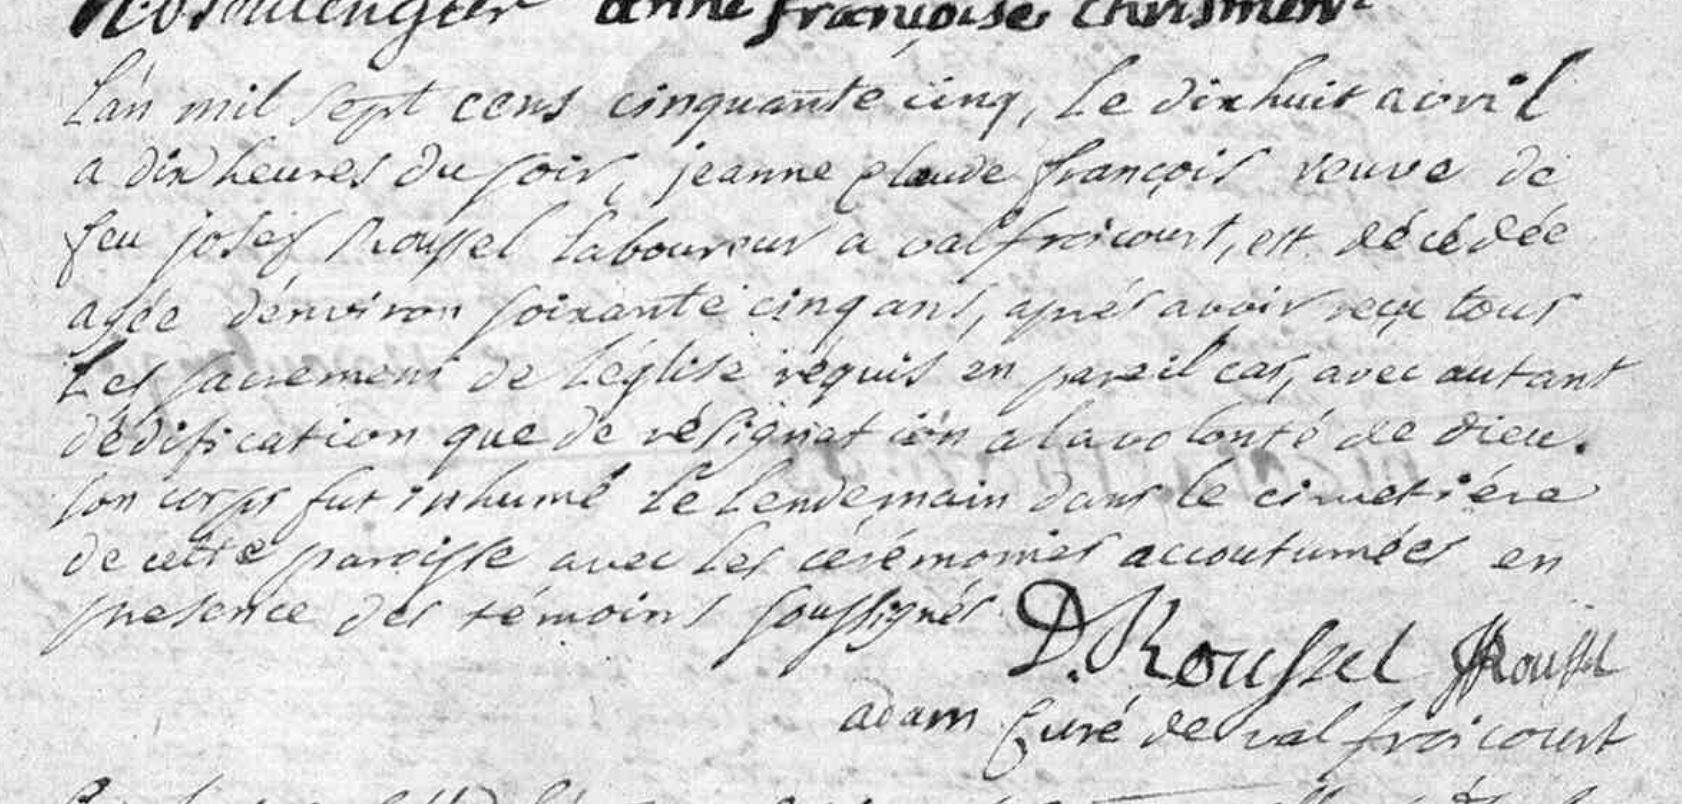 anne françoise
Lan mil sept cens cinquante cinq, le dixhuit avril
a dix heures du soir, jeanne claude françois veuve de
feu josef Roussel laboureur a valfroicourt, est décédée
agée d'environ soixante cinq ans, aprés avoir reçu tous
les sacremens de l'église réquis en pareil cas, avec autant
d'édification que de résignation a la volonté de dieu.
son corps fut inhumé le lendemain dans le cimetiére
de cette paroisse avec les cérémonies accoutumées en
presence des témoins soussignés
D. Roussel JRoussel
adam Curé de valfroicourt